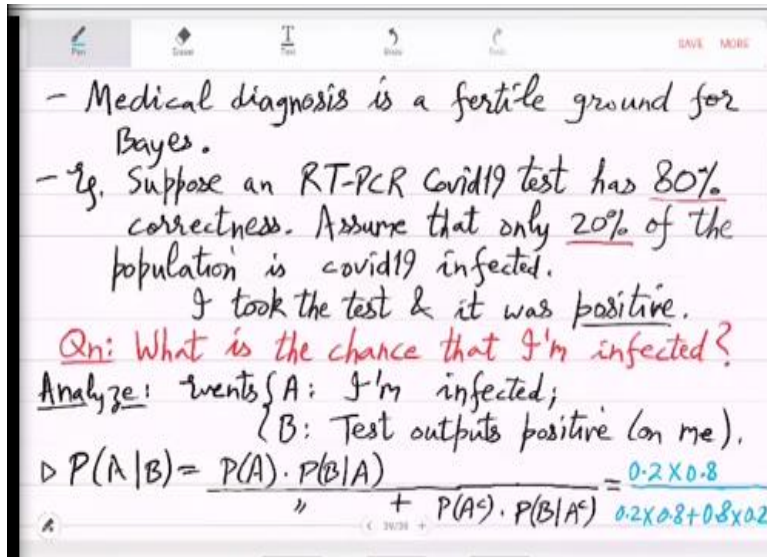 Pen Eraser Text Undo Redo SAVE MORE
- Medical diagnosis is a fertile ground for
Bayes.
- Eg. Suppose an RT-PCR Covid19 test has 80%
correctness. Assume that only 20% of the
population is covid19 infected.
I took the test & it was positive.
Qn: What is the chance that I'm infected?
Analyze: events { A: I'm infected;
B: Test outputs positive (on me).
▷ P(A|B) = P(A). P(B|A) = 0.2×0.8
" + P(Aᶜ). P(B|Aᶜ) 0.2×0.8+0.8×0.2
< 39/39 +